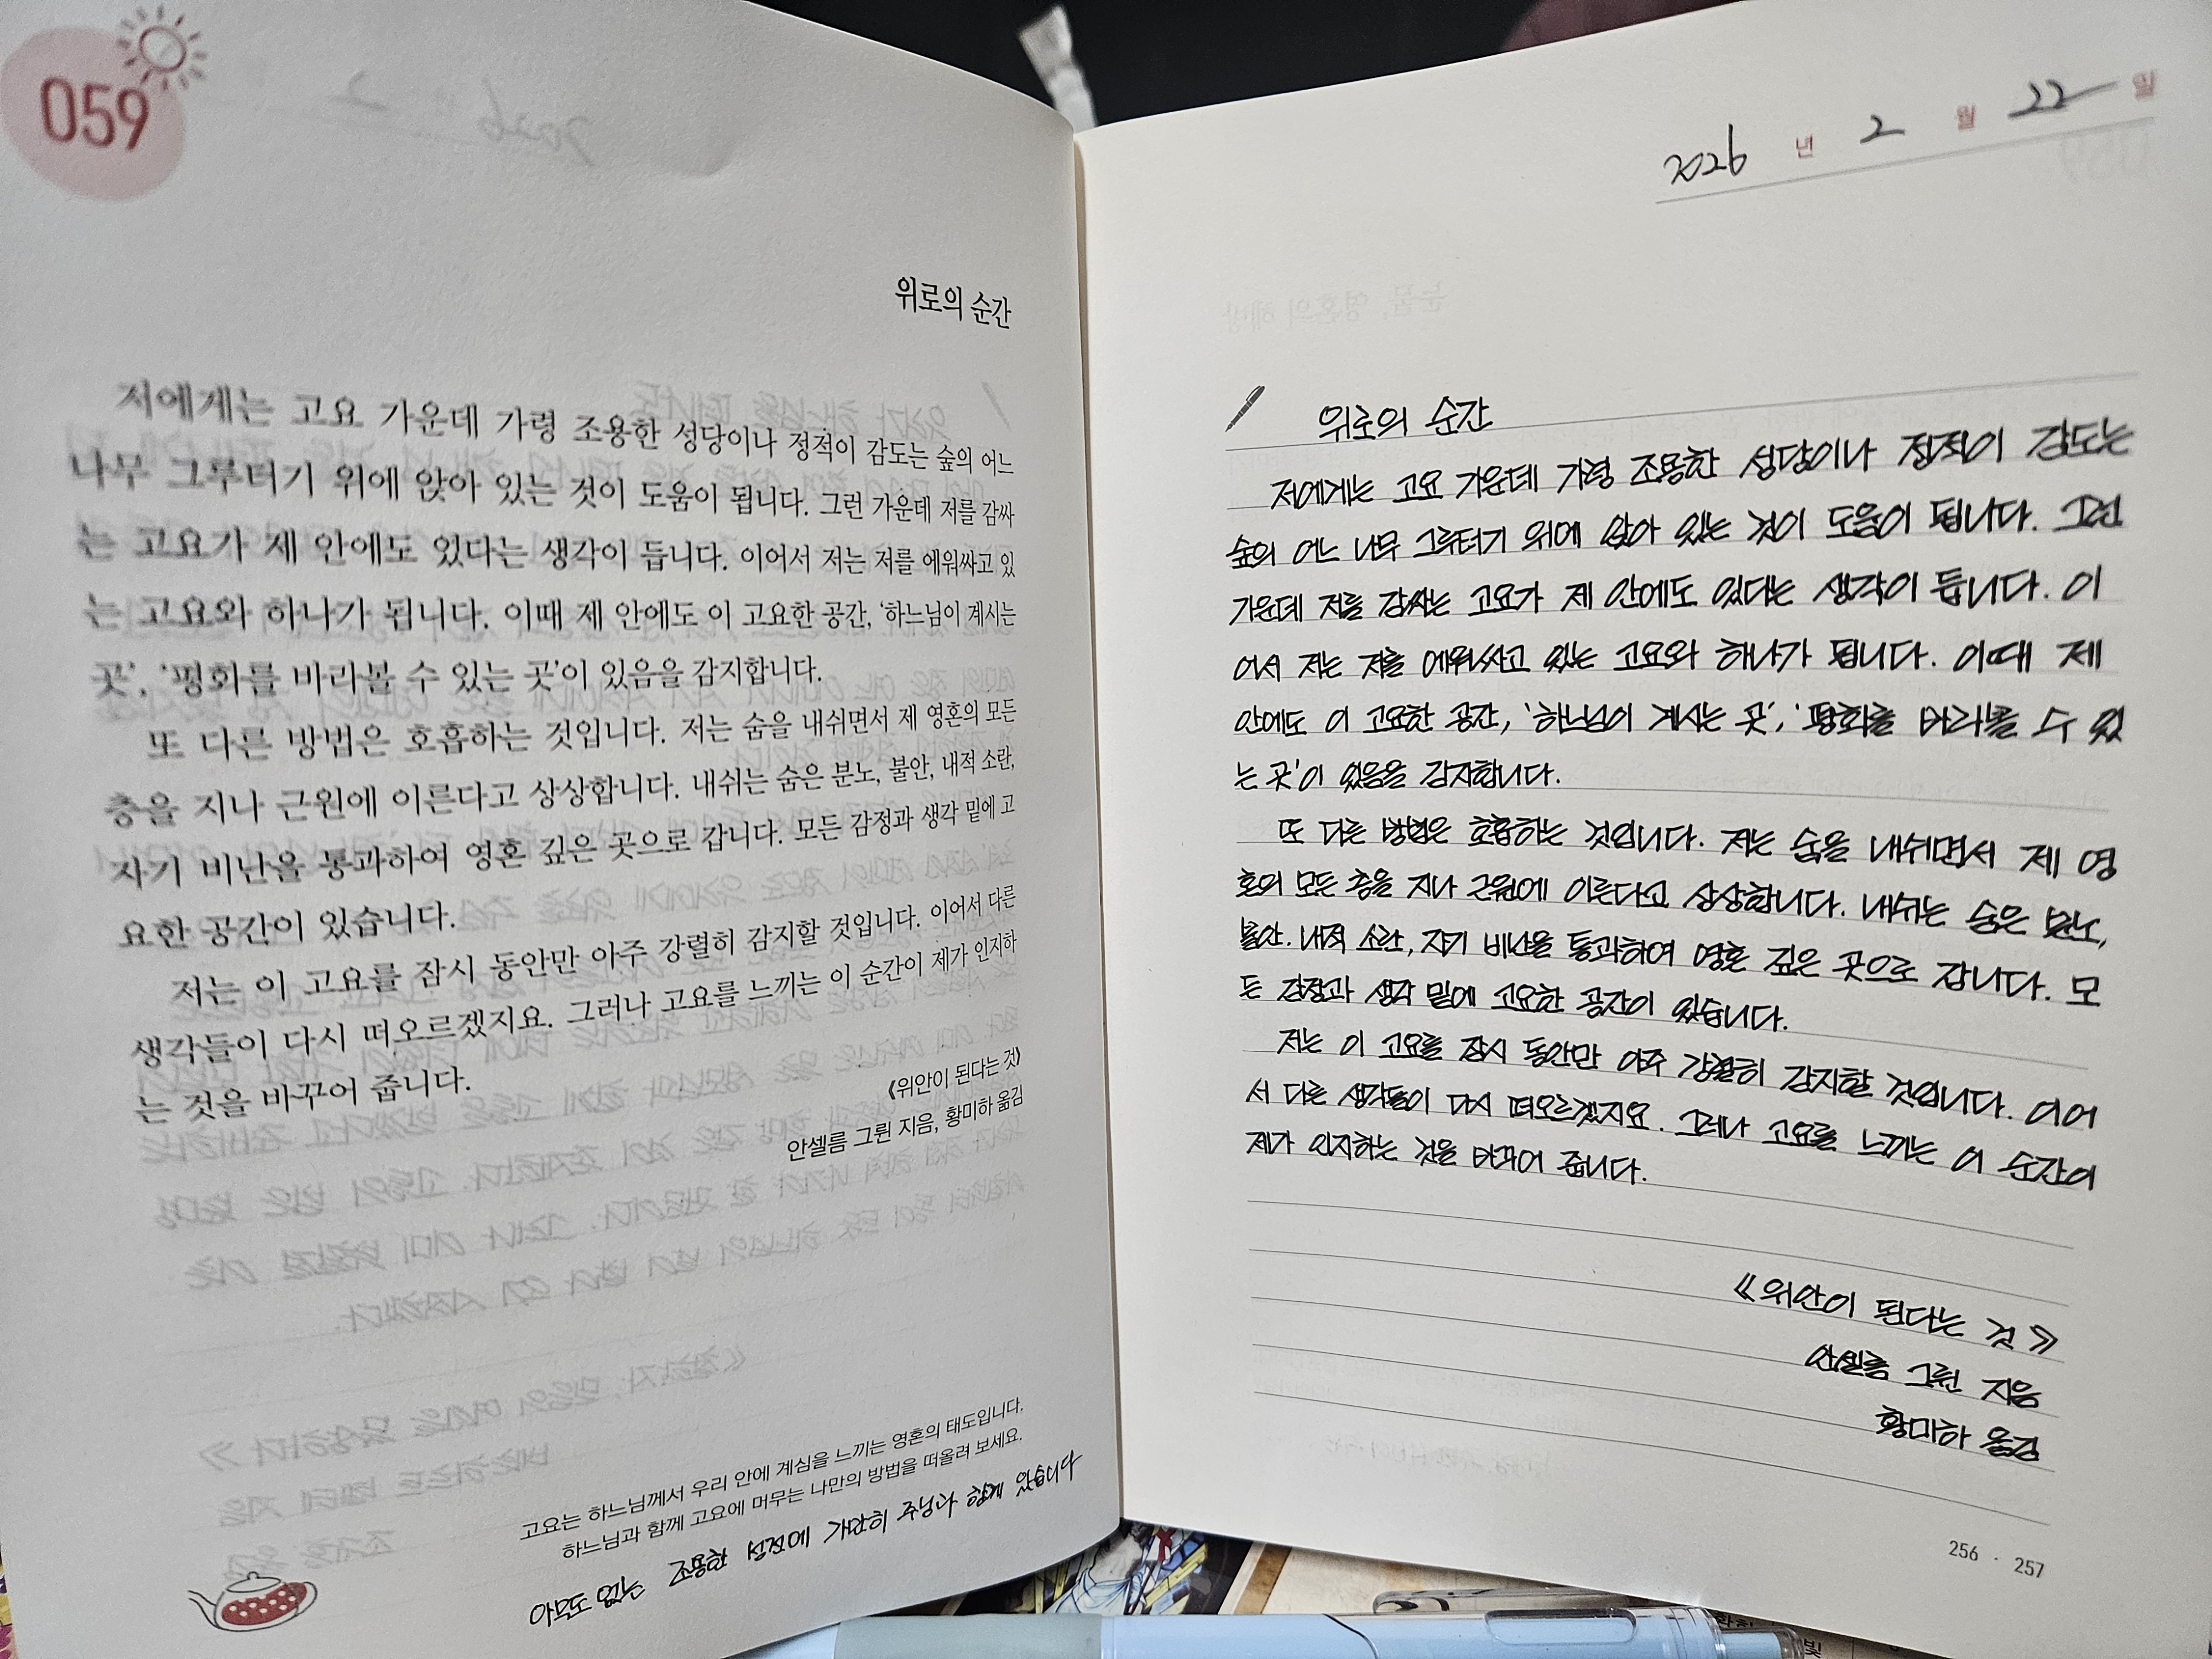 059
위로의 순간
저에게는 고요 가운데 가령 조용한 성당이나 정적이 감도는 숲의 어느
나무 그루터기 위에 앉아 있는 것이 도움이 됩니다. 그런 가운데 저를 감싸
는 고요가 제 안에도 있다는 생각이 듭니다. 이어서 저는 저를 에워싸고 있
는 고요와 하나가 됩니다. 이때 제 안에도 이 고요한 공간, ‘하느님이 계시는
곳’, ‘평화를 바라볼 수 있는 곳’이 있음을 감지합니다.
또 다른 방법은 호흡하는 것입니다. 저는 숨을 내쉬면서 제 영혼의 모든
층을 지나 근원에 이른다고 상상합니다. 내쉬는 숨은 분노, 불안, 내적 소란,
자기 비난을 통과하여 영혼 깊은 곳으로 갑니다. 모든 감정과 생각 밑에 고
요한 공간이 있습니다.
저는 이 고요를 잠시 동안만 아주 강렬히 감지할 것입니다. 이어서 다른
생각들이 다시 떠오르겠지요. 그러나 고요를 느끼는 이 순간이 제가 인지하
는 것을 바꾸어 줍니다.
《위안이 된다는 것》
안셀름 그륀 지음, 황미하 옮김
고요는 하느님께서 우리 안에 계심을 느끼는 영혼의 태도입니다.
하느님과 함께 고요에 머무는 나만의 방법을 떠올려 보세요.
아무도 없는 조용한 성전에 가만히 주님과 함께 있습니다
2026 년 2 월 22 일
위로의 순간
저에게는 고요 가운데 가령 조용한 성당이나 정적이 감도는
숲의 어느 나무 그루터기 위에 앉아 있는 것이 도움이 됩니다. 그런
가운데 저를 감싸는 고요가 제 안에도 있다는 생각이 듭니다. 이
어서 저는 저를 에워싸고 있는 고요와 하나가 됩니다. 이때 제
안에도 이 고요한 공간, ‘하느님이 계시는 곳’, ‘평화를 바라볼 수 있
는 곳’이 있음을 감지합니다.
또 다른 방법은 호흡하는 것입니다. 저는 숨을 내쉬면서 제 영
혼의 모든 층을 지나 근원에 이른다고 상상합니다. 내쉬는 숨은 분노,
불안. 내적 소란, 자기 비난을 통과하여 영혼 깊은 곳으로 갑니다. 모
든 감정과 생각 밑에 고요한 공간이 있습니다.
저는 이 고요를 잠시 동안만 아주 강렬히 감지할 것입니다. 이어
서 다른 생각들이 다시 떠오르겠지요. 그러나 고요를 느끼는 이 순간이
제가 인지하는 것을 바꾸어 줍니다.
《위안이 된다는 것》
안셀름 그륀 지음
황미하 옮김
256 · 257